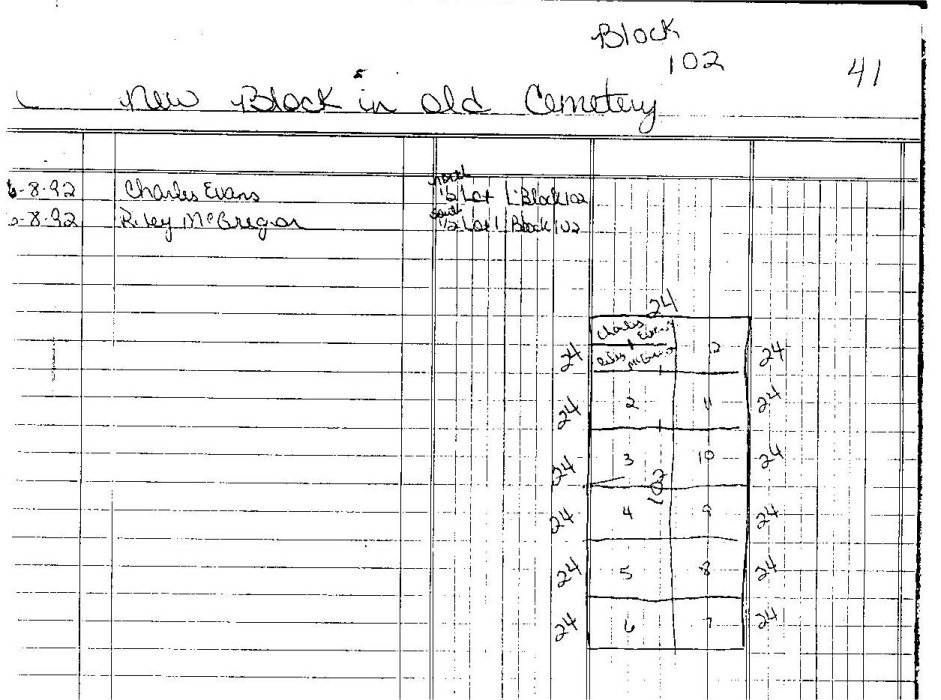 Block
102
41
New Block in old Cemetery
6-8-92 Charles Evans north 1/2 Lot 1 Block 102
6-8-92 Riley McGregor south 1/2 Lot 1 Block 102
24
24 Charles Evans 12 24
Riley McGregor
24 2 11 24
24 3 10 24
102
24 4 9 24
24 5 8 24
24 6 7 24